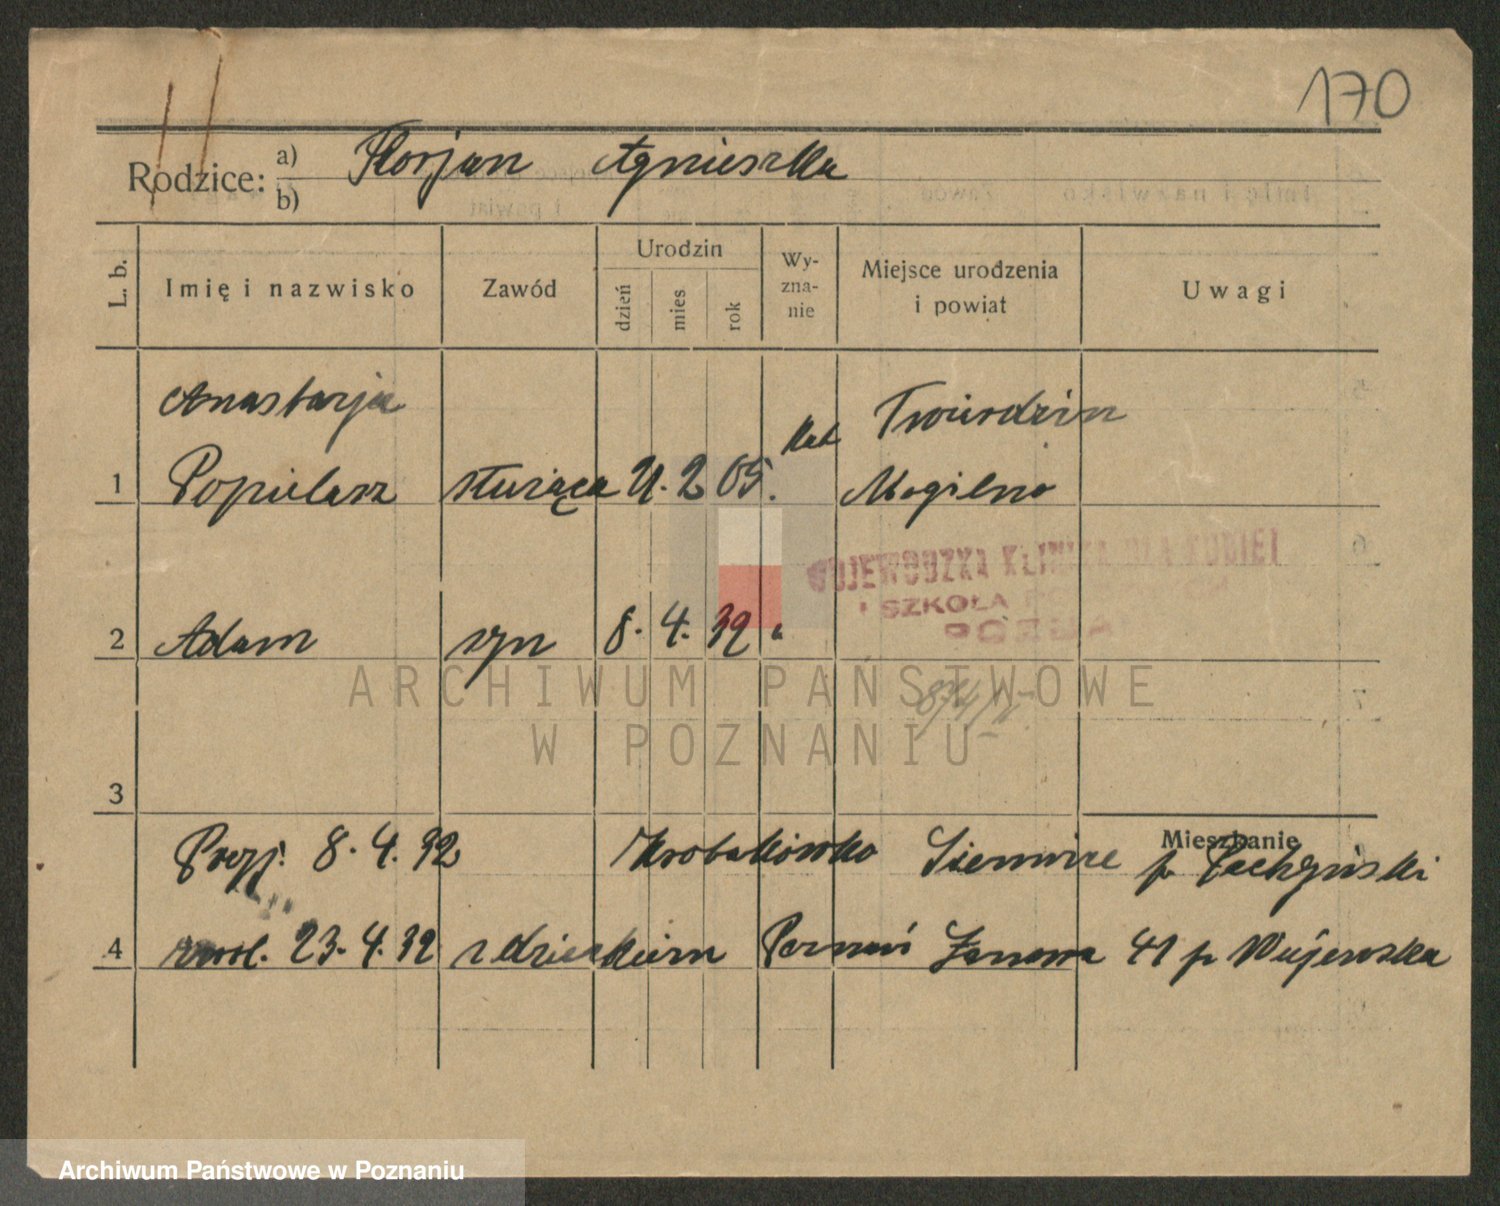 170
Rodzice: a) Florjan Agnieszka
b)
L. b. Imię i nazwisko Zawód Urodzin dzień mies rok Wy-zna-nie Miejsce urodzenia i powiat Uwagi
Anastazja Twierdzin
1 Popielarz służąca 21. 2 05. kat Mogilno
WOJEWÓDZKA KLINIKA DLA KOBIET
I SZKOŁA
2 Adam syn 8. 4. 32 "
ARCHIWUM PAŃSTWOWE
W POZNANIU
3
Mieszkanie
Przyj. 8. 4. 32 p.
4 zwol. 23. 4. 32 z dzieckiem Poznań 41 p
Archiwum Państwowe w Poznaniu